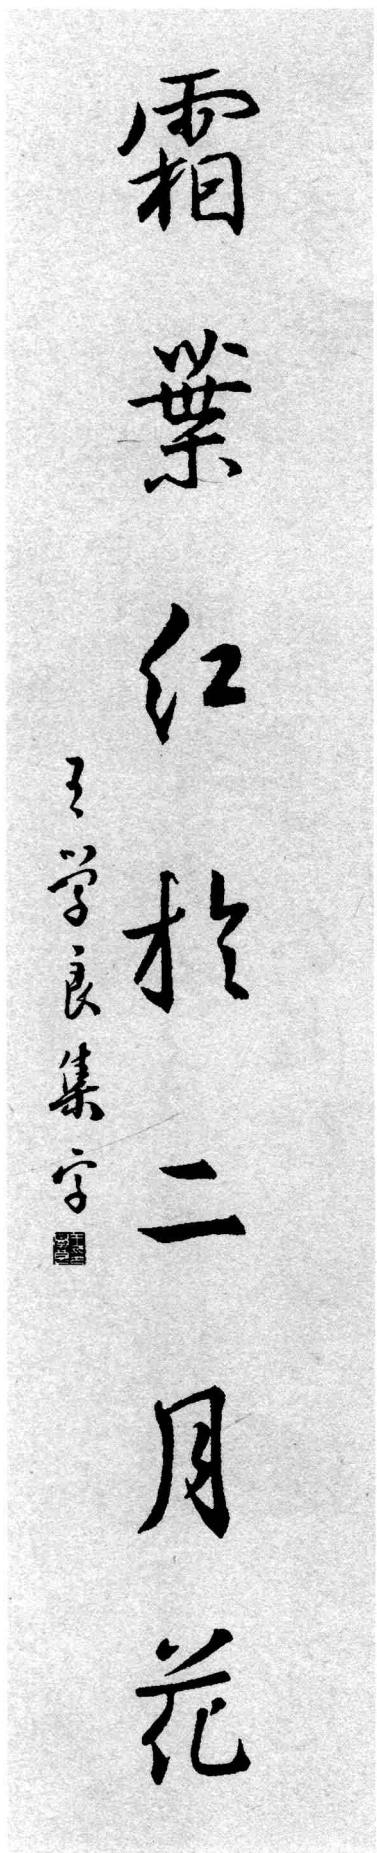 霜葉红於二月花
王学良集字